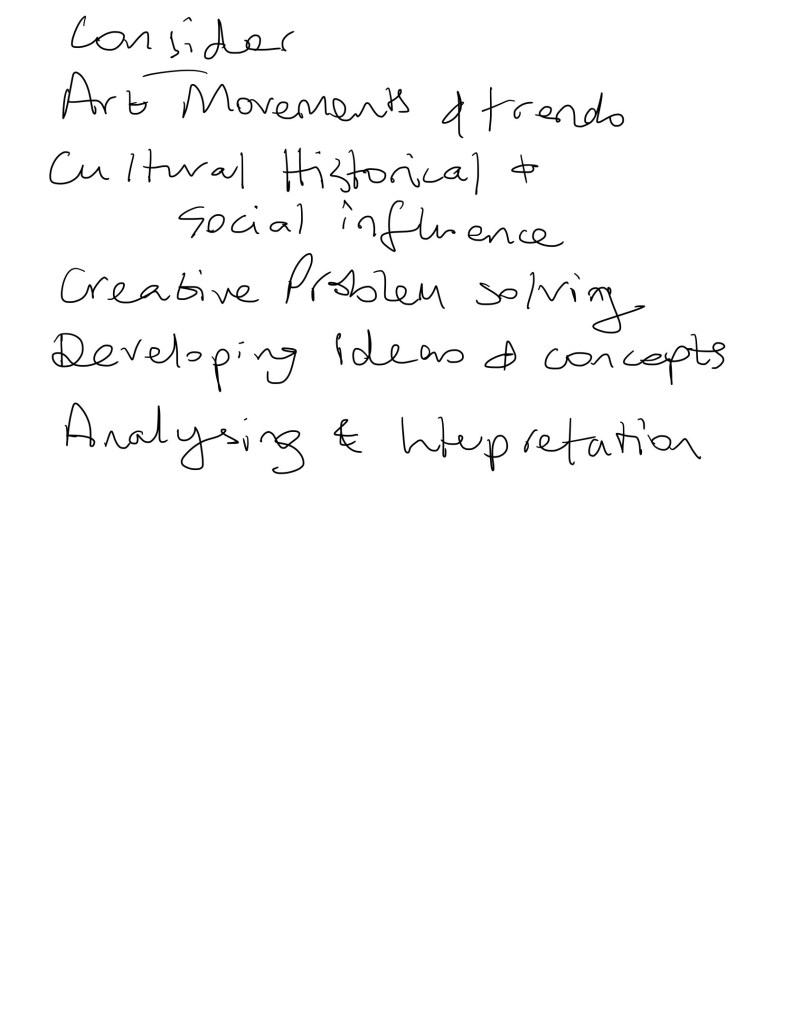 Consider
Art Movements & trends
Cultural Historical &
social influence
Creative Problem solving
Developing Ideas & concepts
Analysing & Intepretation